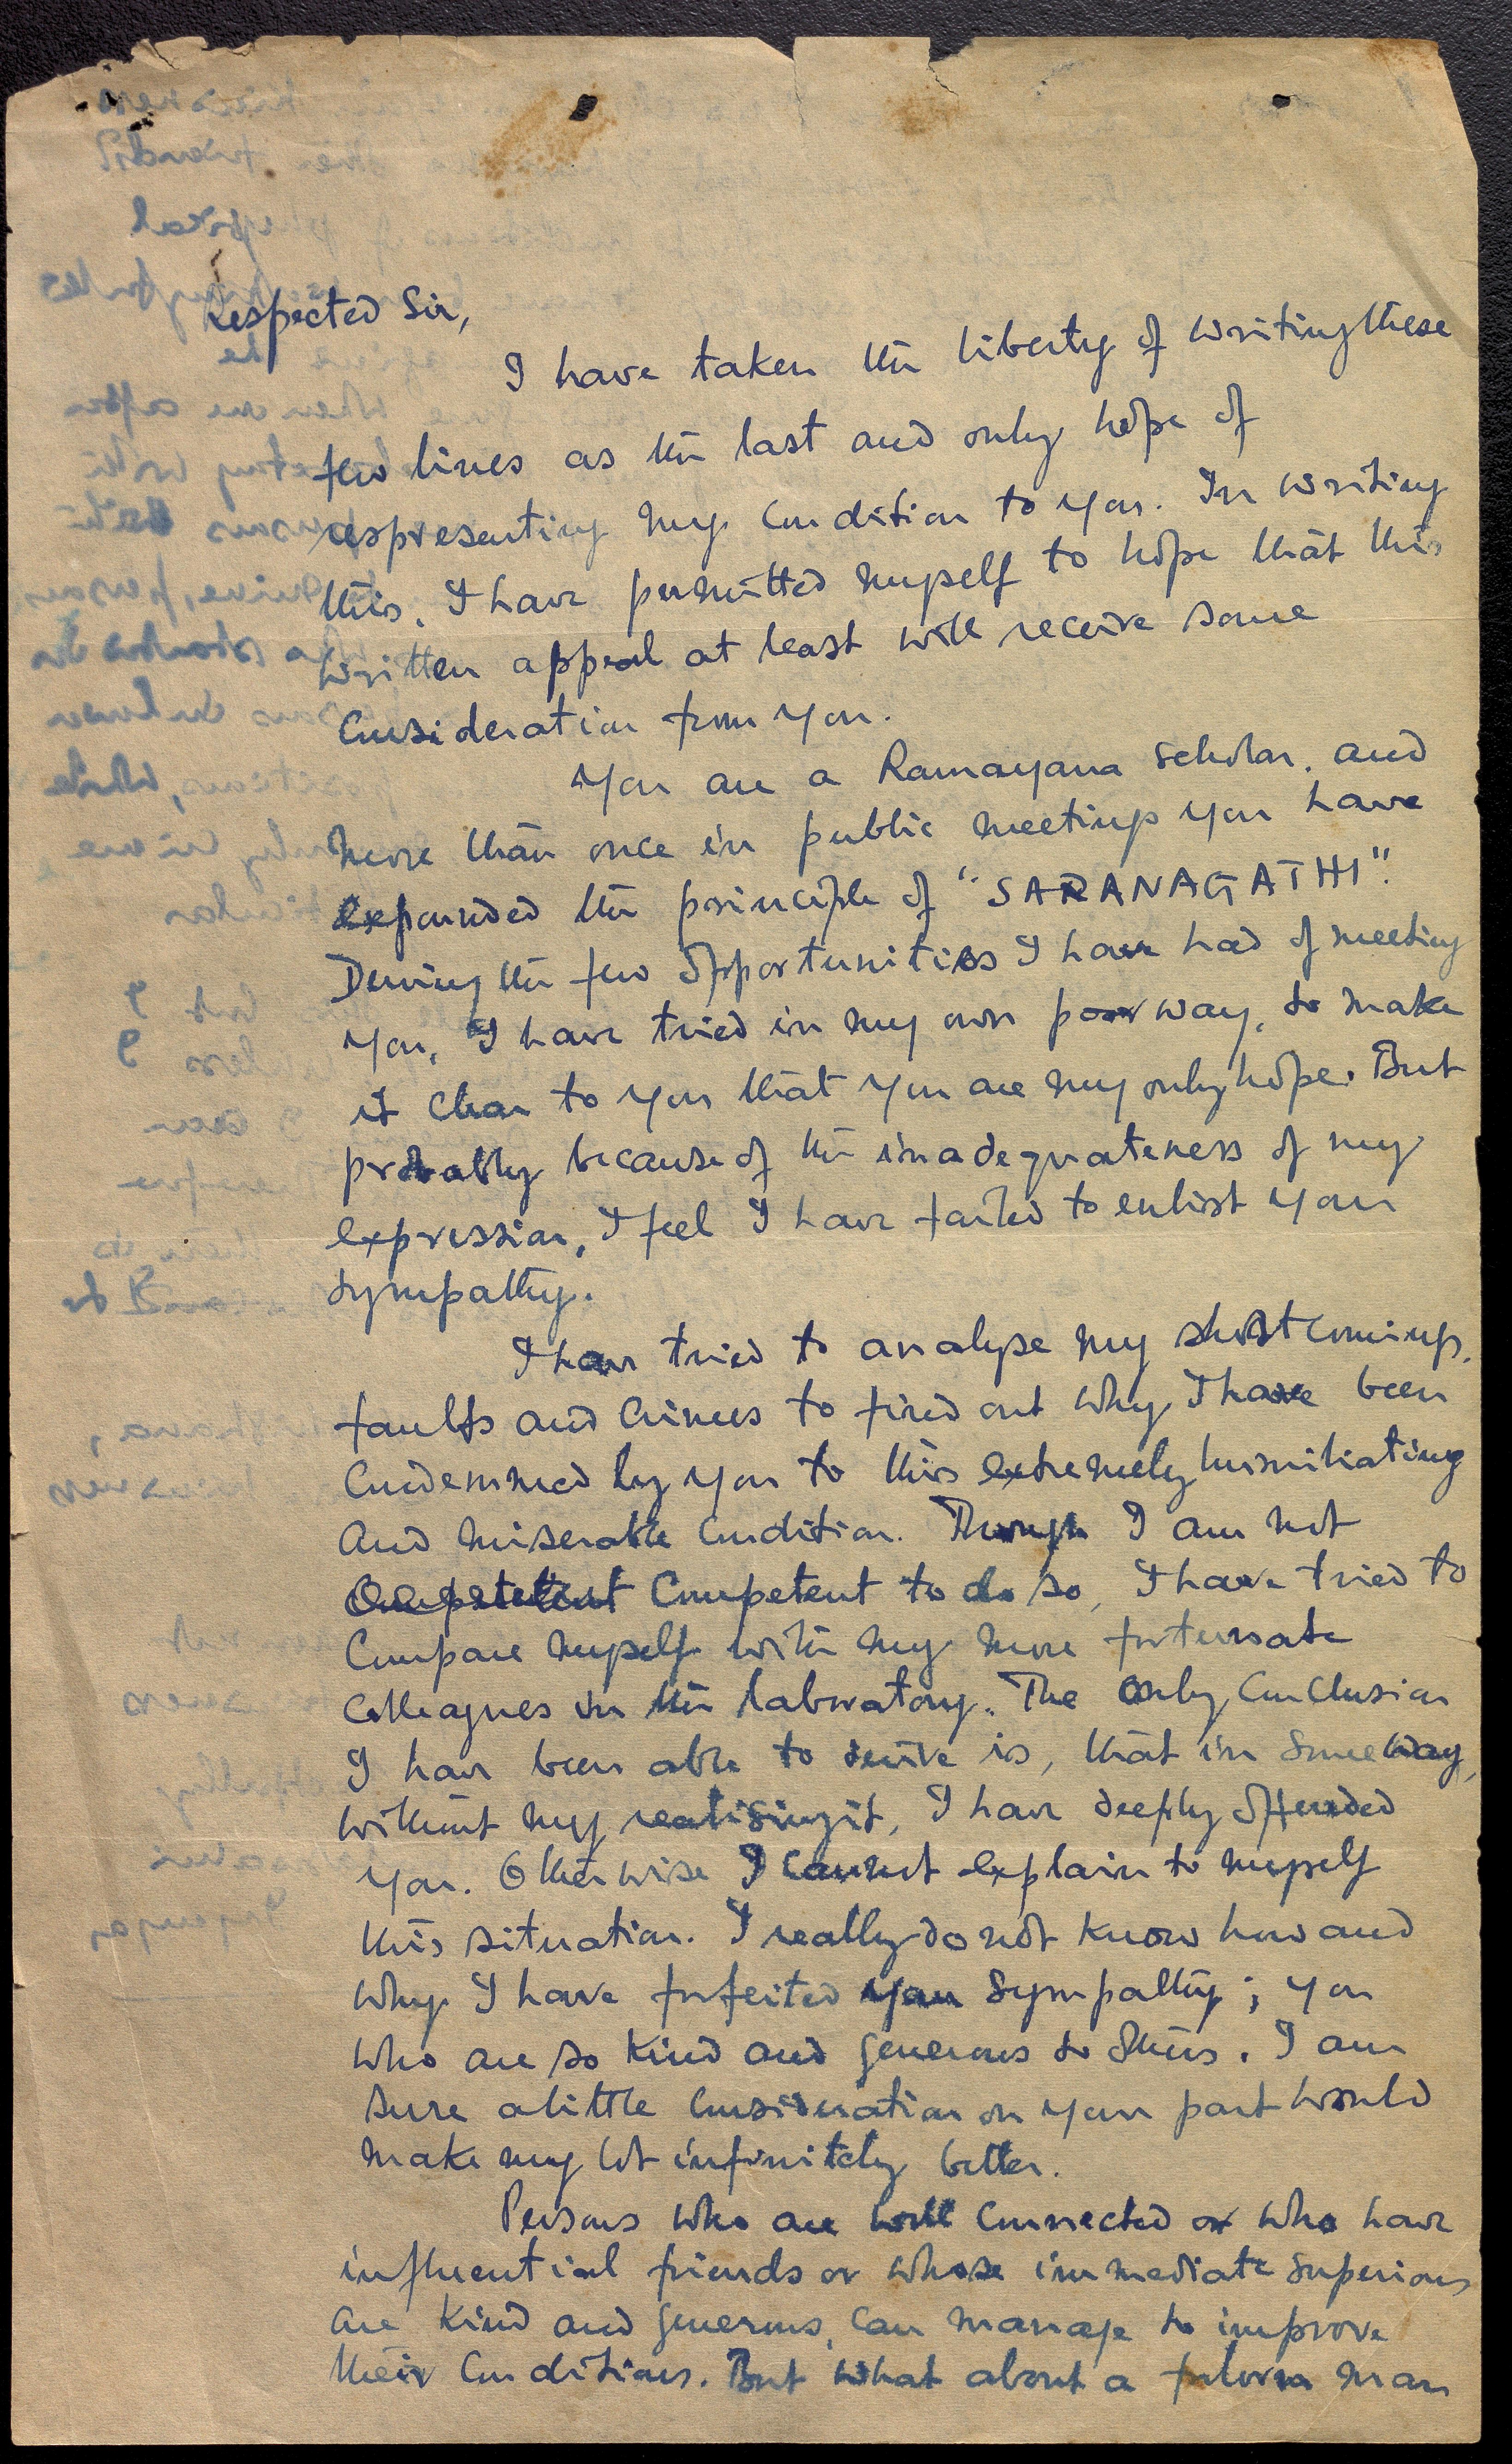 Respected Sir,
I have taken the liberty of writing these
few lines as the last and only hope of
respresenting my condition to you. In writing
this, I have permitted myself to hope that this
written appeal at least will receive some
consideration from you.
You are a Ramayana scholar, and
more than once in public meetings you have
expounded the principle of "SARANAGATHI".
During the few opportunities I have had of meeting
you, I have tried in my own poor way, to make
it clear to you that you are my only hope. But
probably because of the inadequateness of my
expression, I feel I have failed to enlist your
sympathy.
I have tried to analyse my shortcomings,
faults and crimes to find out why I have been
condemned by you to this extremely humiliating
and miserable condition. Though I am not
competent to do so, I have tried to
compare myself with my more fortunate
colleagues in the laboratory. The only conclusion
I have been able to derive is, that in some way,
without my realising it, I have deeply offended
you. Otherwise I cannot explain to myself
this situation. I really do not know how and
why I have forfeited your sympathy; you
who are so kind and generous to others. I am
sure a little consideration on your part would
make my lot infinitely better.
Persons who are well connected or who have
influential friends or whose immediate superiors
are kind and generous, can manage to improve
their conditions. But what about a forlorn man